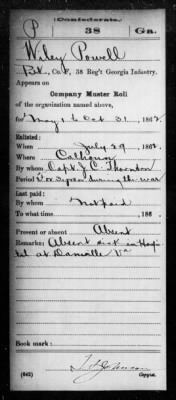 Confederate.
P 38 Ga.
Wiley Powell
Pvt., Co. F, 38 Reg't Georgia Infantry.
Appears on
Company Muster Roll
of the organization named above,
for May 1 to Oct 31, 1862.
Enlisted:
When July 29, 1862.
Where Calhoun
By whom Capt J. C. Thornton
Period 3 or sooner during the war
Last paid:
By whom Not paid
To what time , 186 .
Present or absent Absent
Remarks: Absent sick in Hospi
tal at Danville Va
Book mark:
(642) Johnson
Copyist.